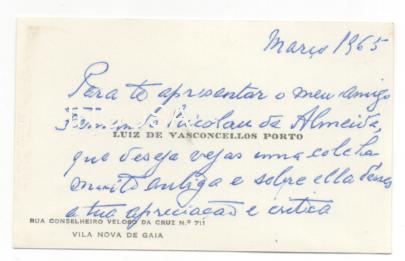 Março 1965
Para te apresentar o meu amigo
Fernando Nicolau de Almeida,
LUIZ DE VASCONCELLOS PORTO
que deseja vejas uma colcha
muito antiga e sobre ella dês
a tua apreciação e critica
RUA CONSELHEIRO VELOSO DA CRUZ N.º 711
VILA NOVA DE GAIA